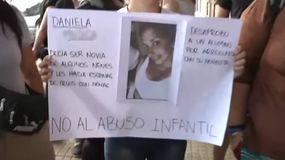 DANIELA
DECIA SER NOVIA
DE ALGUNOS NENES
Y LES HACIA ESCENAS
DE CELOS CON NOVIAS
DESAPROBO
A UN ALUMNO
POR
CON SU
NO AL ABUSO INFANTIL